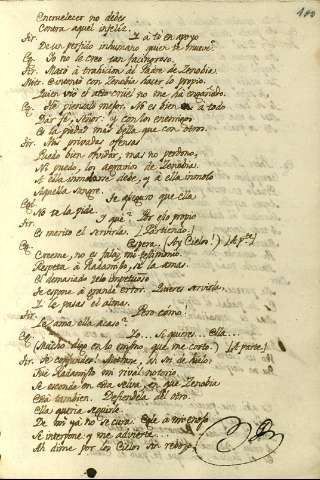 100
Encruelecer no debes
Contra aquel infeliz.
Tir. I à tò en apoyo
De un perfido inhumano quien te mueve?
Eg. Io no le creo tan facineroso.
Tir. Matò à tradicion al Padre de Zenobia.
intentò con Zenobia hacer lo propio.
Quien viò el atro cruel no me ha engañado.
Eg. Io piensalo mejor. No es bien a todo
Dar fè, Señor: y con los enemigos
Es la piedad mas bella que con otros.
Tir. Mis privadas ofensas
Puedo bien olvidar, mas no perdono,
Ni puedo, los agravios de Zenobia.
A ella inmolarse debe, y à ella inmolo
Aquella sangre.
Eg. Te aseguro que ella
No te la pide.
Tir. I què? Por ello propio
Es merito el servirla. [Partiendo]
Eg. Espera. (Ay Cielos!) [Ap.te]
Creeme, no es falso mi testimonio.
Respeta à Radamisto, si la amas.
El demasiado zelo impetuoso
Te expone à grande error. Quieres servirla,
I le pasas el alma.
Tir. Pero como?
Le ama ella acaso?
Eg. Lo... Si quiere... Ella...
(Mucho digo en lo confuso que me corto.) [Aparte]
Tir. Te confundes!
Fue Radamisto mi rival notorio.
Se esconde en esta selva, en que Zenobia
Està tambien. Defiendela del otro.
Ella queria seguirle.
De mi ya no se cura. Egle à mi enojo
Se interpone y me advierte...
Ah dime por los Cielos sin rebozo